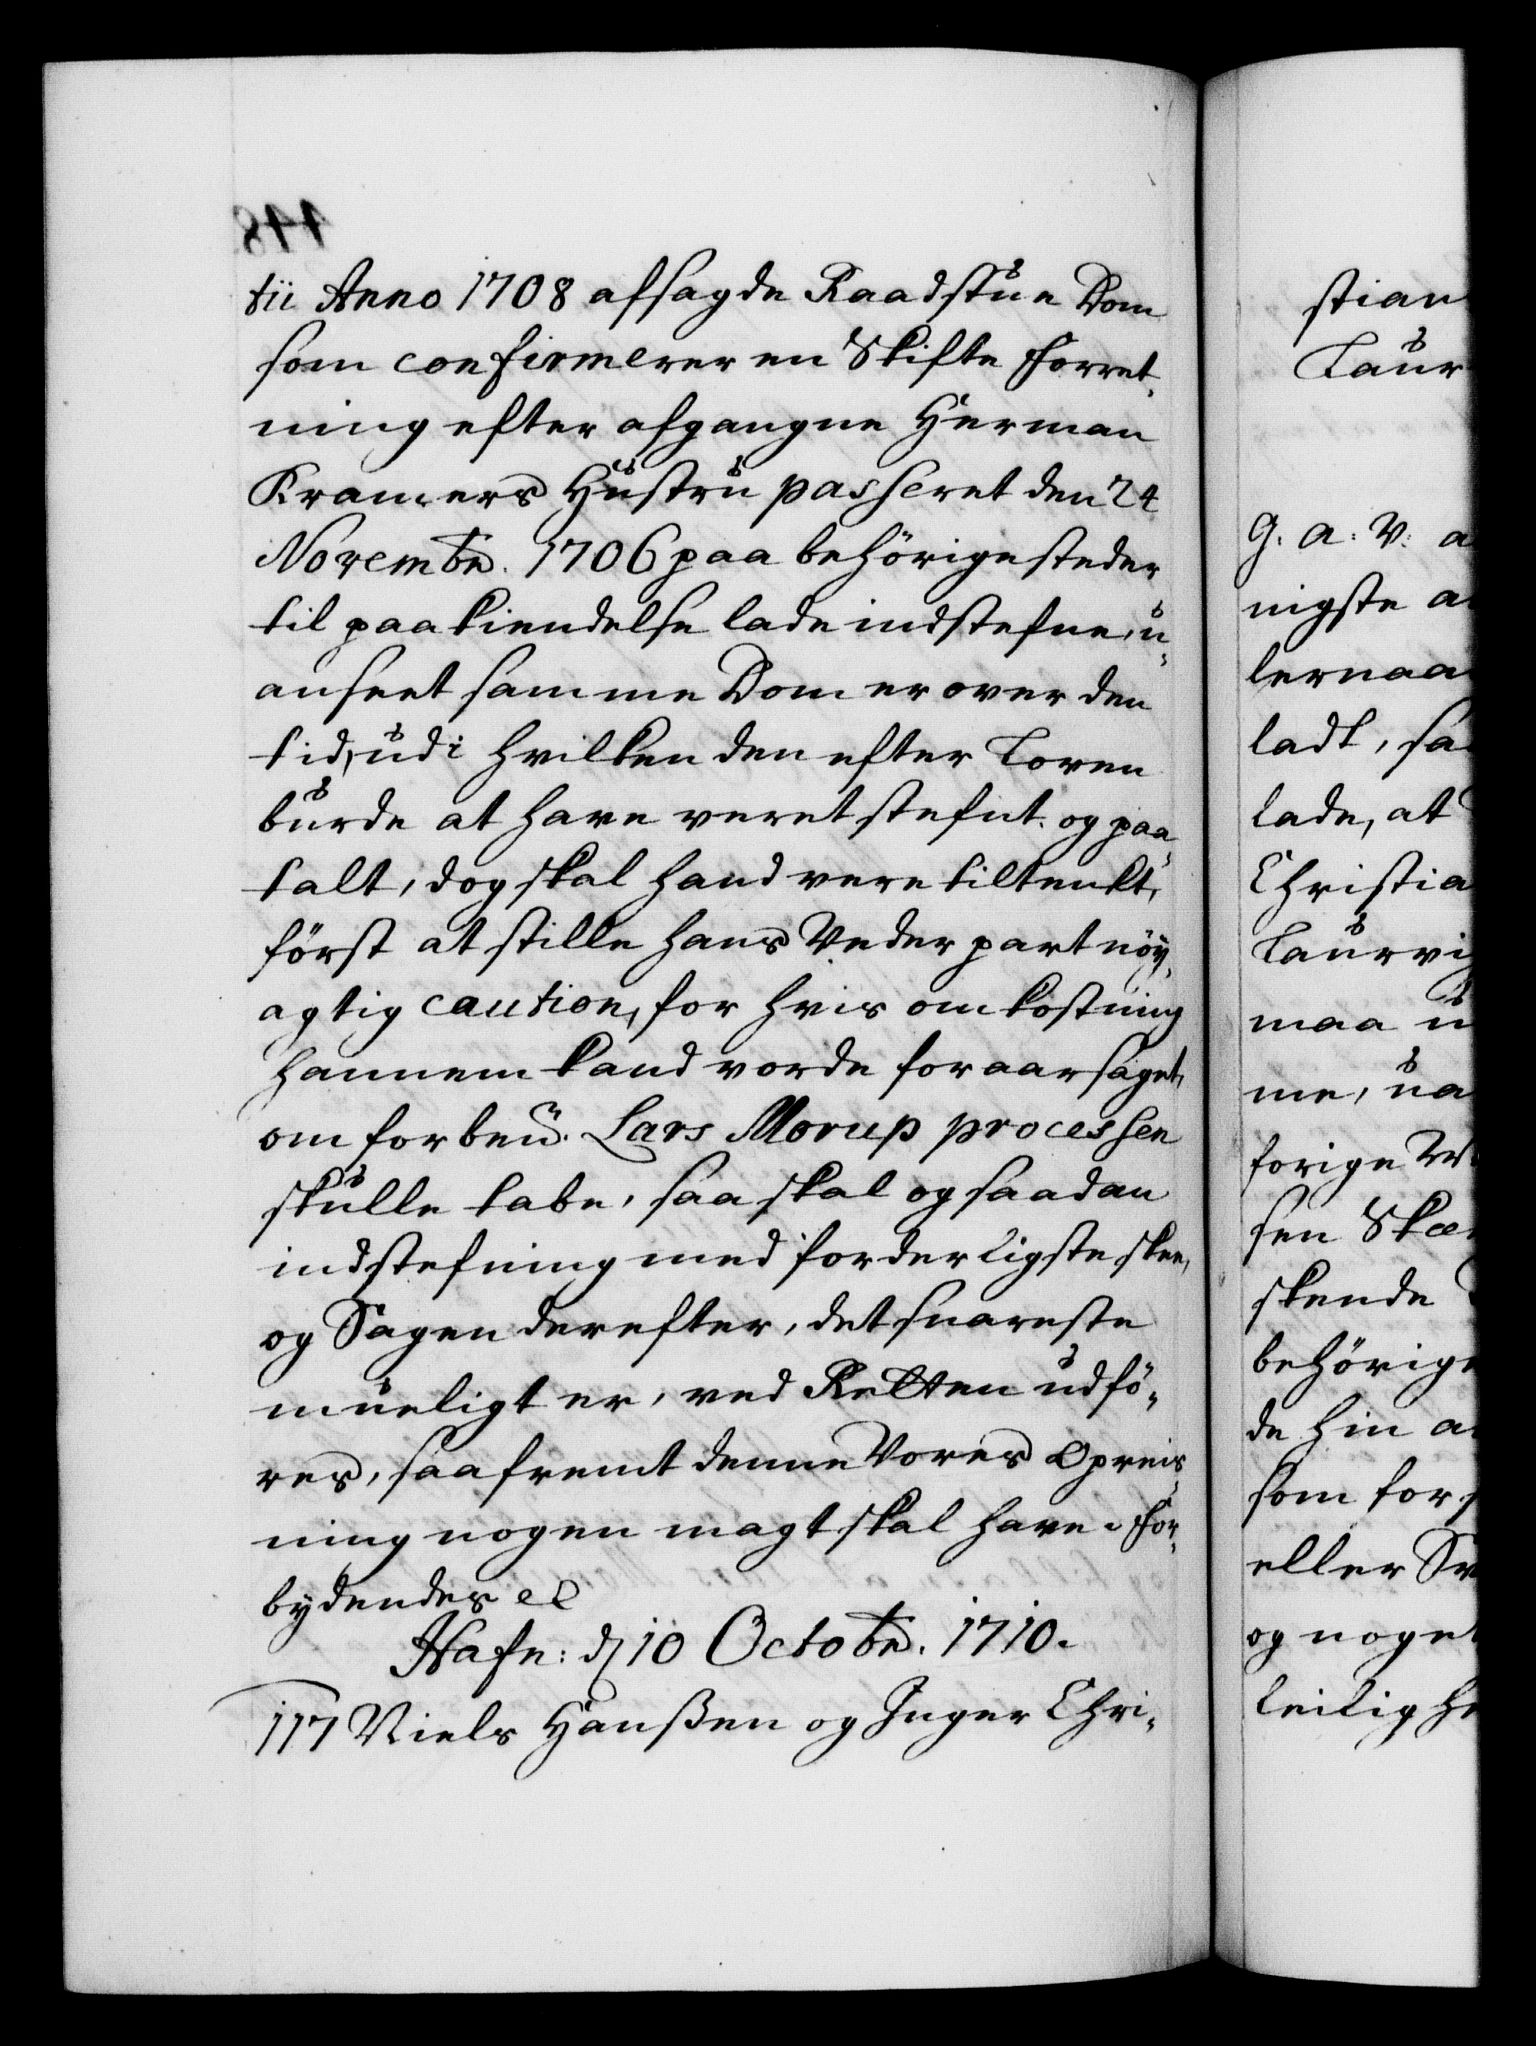 tii Anno 1708 afsagde Raadstue Dom
som confirmerer en Skifte Forret,
ning efter afgangne Herman
Kramers Hustru passeret den 24
Novembr. 1706 paa behörige steder
til paakiendelse lade indstefne, u,,
anseet samme Dom er over den
tid, udi hvilken den efter Loven
burde at have veret stefnt og paa
talt, dog skal hand vere tiltenkt,
först at stille hans Veder part nöy,
agtig caution, for hvis omkostning
hannem kand vorde foraarsaget,
om forben. Lars Morup processen
skulle tabe, saa skal og saadan
indstefning med forderligste skee,
og Sagen derefter, det snareste
mueligt er, ved Retten udfö,,
res, saafremt denne Vores Opreis
ning nogen magt skal have. For,,
bydendes etc
Hafn: d 10 Octobr. 1710.
117 Niels Hanßen og Inger Chri,,
stian
Laur
G. A: V: a
nigste a
lernaa
ladt, sa
lade, at
Christia
Laurvig
maa u
me, ua
forige
sen Skæ
skende
behörige
de hin a
som for
eller
og noget
leilighe